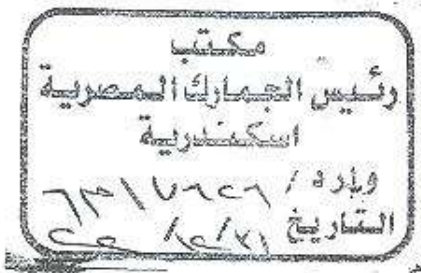 مكتب
رئيس الجمارك المصرية
اسكندرية
وارد /
التاريخ